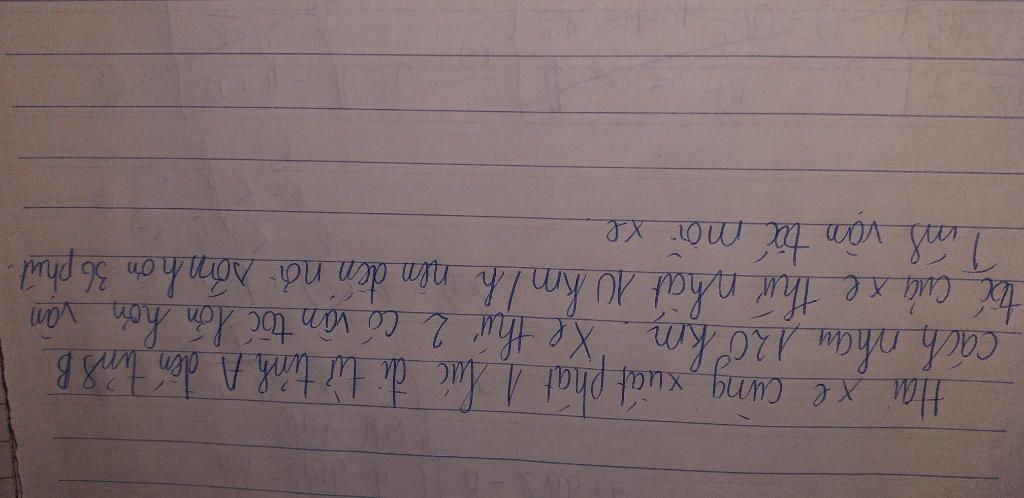 Hai xe cùng xuất phát 1 lúc đi từ tỉnh A đến tỉnh B
cách nhau 120 km. Xe thứ 2 có vận tốc lớn hơn vận
tốc của xe thứ nhất 10 km/h nên đến nơi sớm hơn 36 phút.
Tính vận tốc mỗi xe.